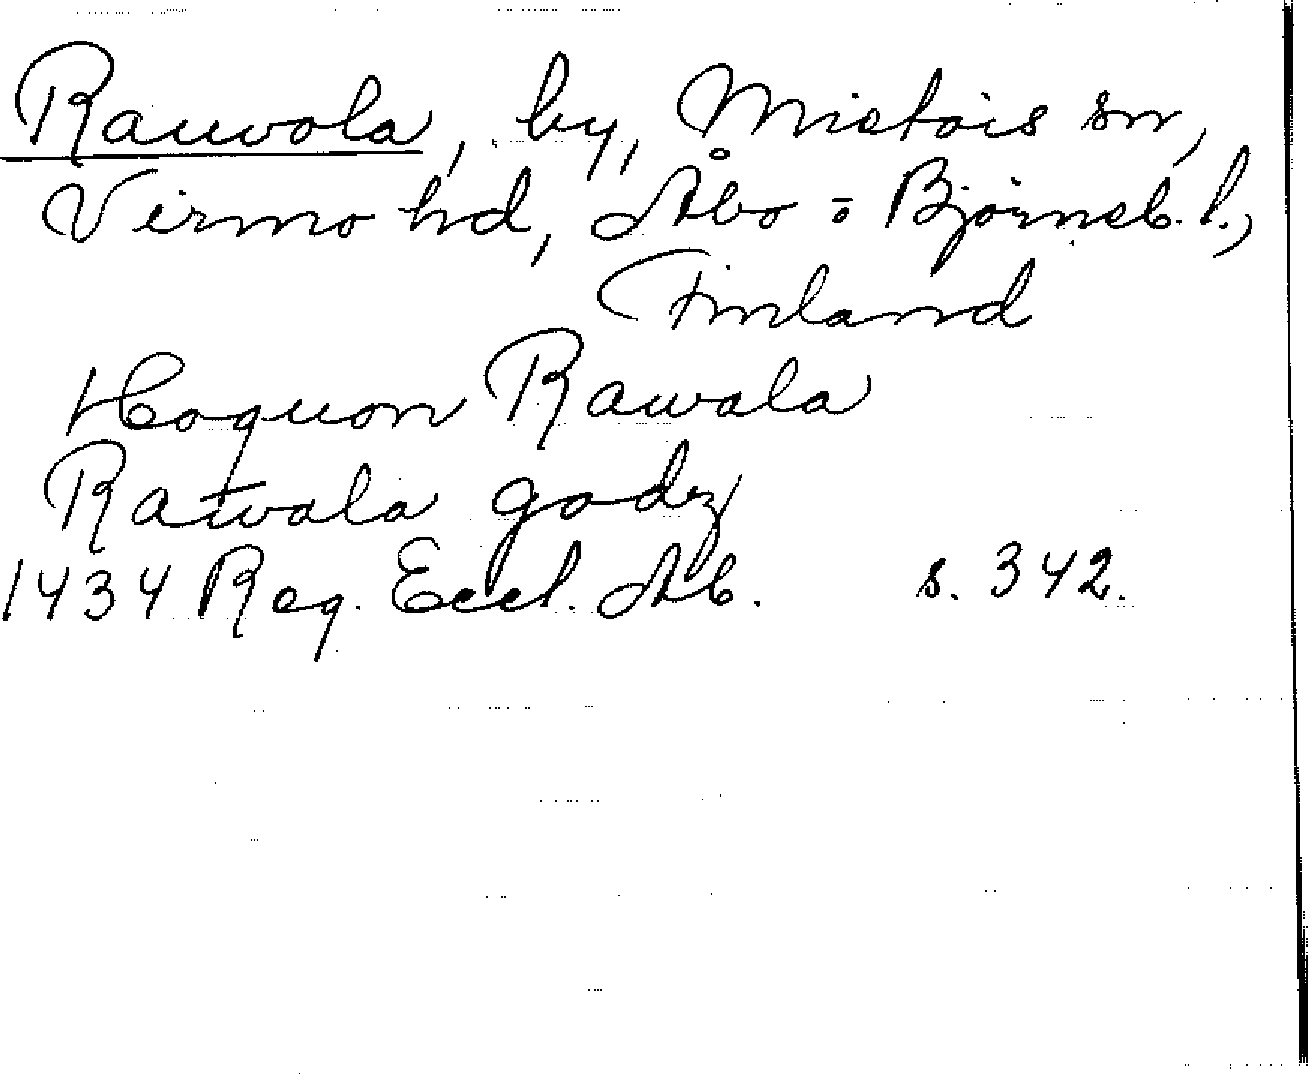 Rauvola, by, Mietois sn,
Virmo hd, Åbo = Björneb. l.,
Finland
Haquon Rawala
Rawala godz
1434 Reg. Eccl. Ab. s. 342.